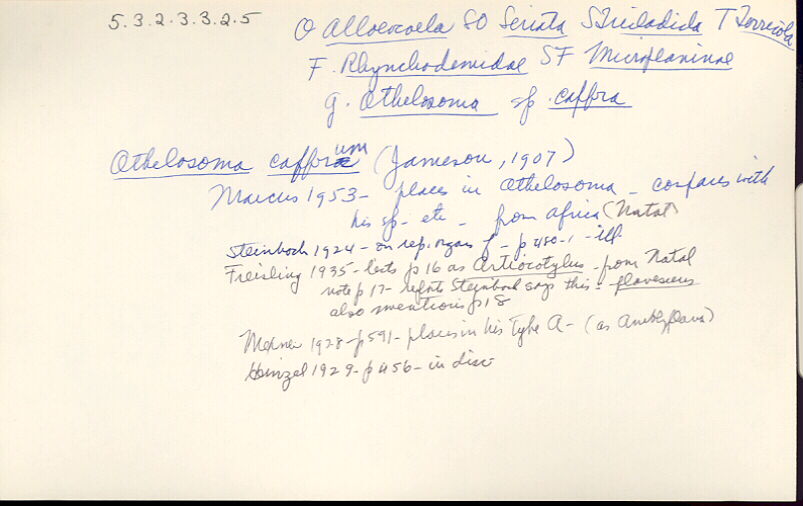 5.3.2.3.3.2.5
O Alloeocoela SO Seriata S Tricladida T Terricola
F. Rhynchodemidae SF Microplaninae
g. Othelosoma sp. caffra
Othelosoma caffrum (Jameson, 1907)
Marcus 1953 - places in Othelosoma - compares with
his sp - etc - from Africa (Natal)
Steinbock 1924 - on rep. organs of - p 480-1 - ill.
Freisling 1935 - lists p 16 as Artiocotylus - from Natal
note p 17 - Steinbock says this - flavescens
also mentions p 18
1928 - p 591 - places in his Type A - (as Amblyplana)
Heinzel 1929 - p 456 - in disc